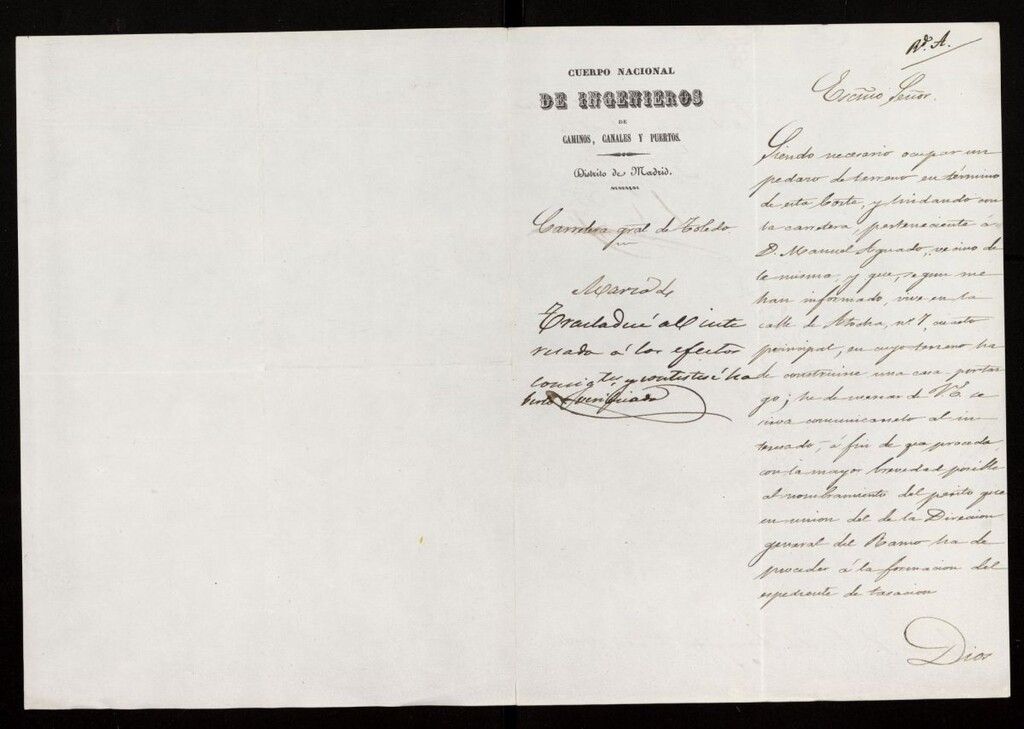 CUERPO NACIONAL
DE INGENIEROS
DE
CAMINOS, CANALES Y PUERTOS.
Distrito de Madrid.
Carretera gral de Toledo.
Marzo 4
Trasladese al inte
resado á los efectos
consigtes y contestese ha
berlo verificado
Rdo. A.
Escmo Señor.
Siendo necesario ocupar un
pedazo de terreno en término
de esta Corte, y lindando con
la carretera, perteneciente á
D. Manuel Aguado, vecino de
la misma, y que, segun me
han informado, vive en la
calle de Atocha, nº 7, cuarto
principal, en cuyo terreno ha
de construirse una casa portaz
go; he de merecer de V.E. se
sirva comunicarselo al in
teresado, á fin de que proceda,
con la mayor brevedad posible
al nombramiento del perito que
en union del de la Direccion
general del Ramo ha de
proceder á la formacion del
expediente de tasacion
Dios